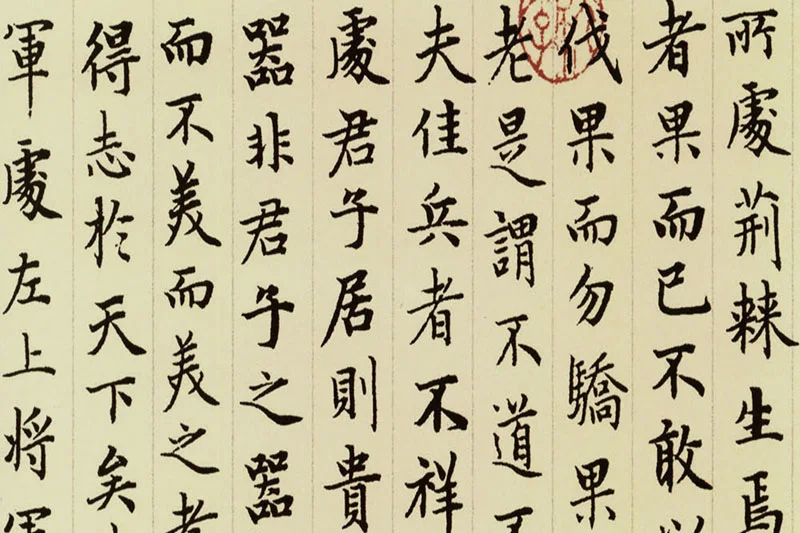 所處荊棘生焉
者果而已不敢以
伐果而勿驕果
老是謂不道不
夫佳兵者不祥
處君子居則貴
器非君子之器
而不美而美之者
得志於天下矣
軍處左上将軍